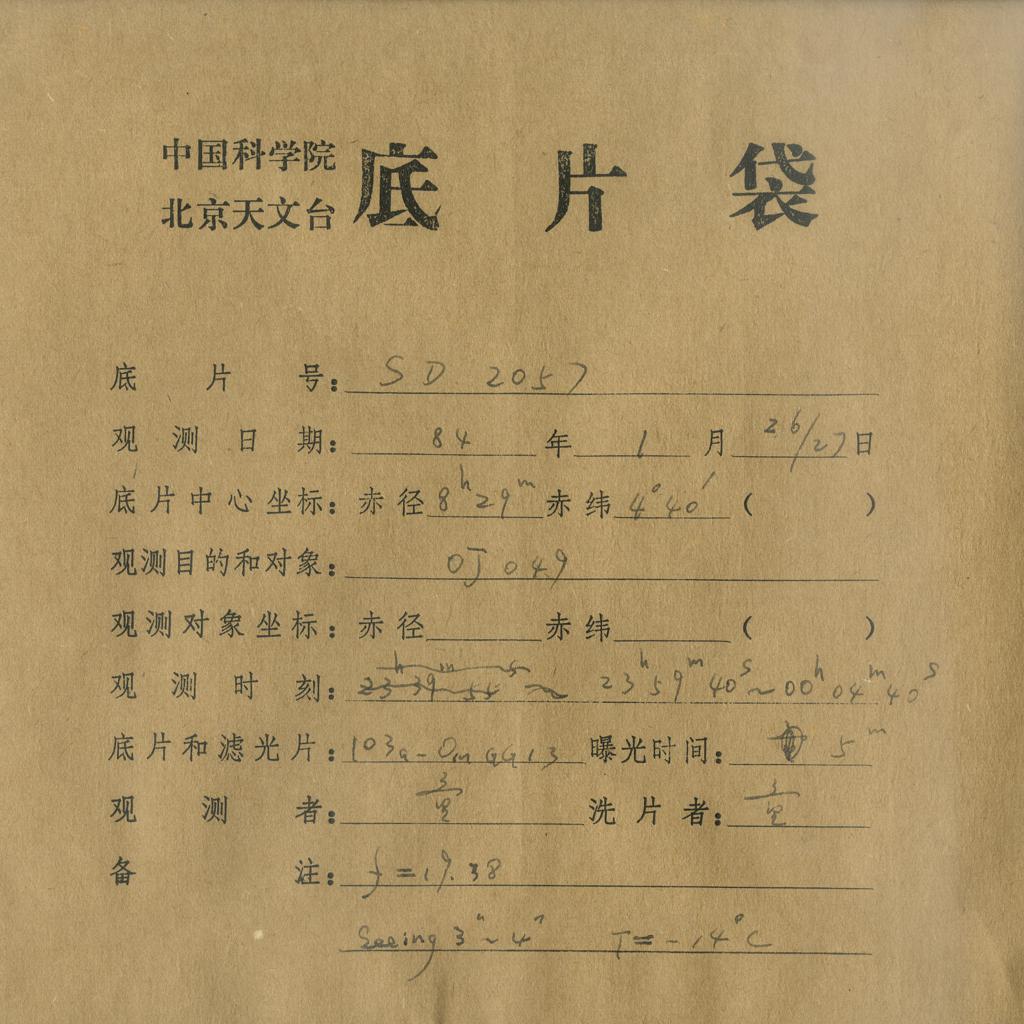 中国科学院
北京天文台
底片袋
底片号: SD 2057
观测日期: 84 年 1 月 26/27 日
底片中心坐标: 赤径 8h29m 赤纬 4°40′ ( )
观测目的和对象: OJ 049
观测对象坐标: 赤径 赤纬 ( )
观测时刻: 23h59m40s~00h04m40s
底片和滤光片: 103a-O GG13 曝光时间: 5m
观测者: 洗片者:
备注: f=19.38
Seeing 3″~4″ T=-14°C